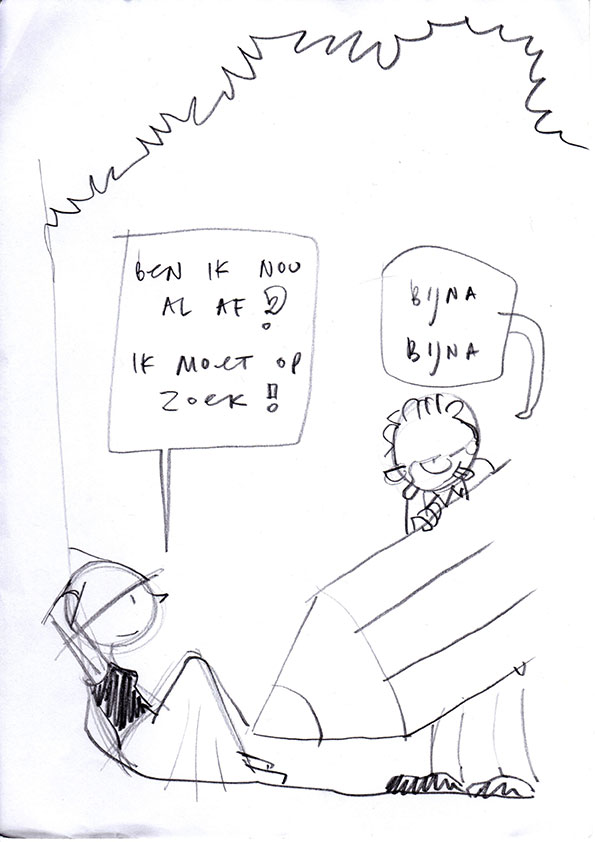 BEN IK NOU
AL AF?
IK MOET OP
ZOEK!!
BIJNA
BIJNA